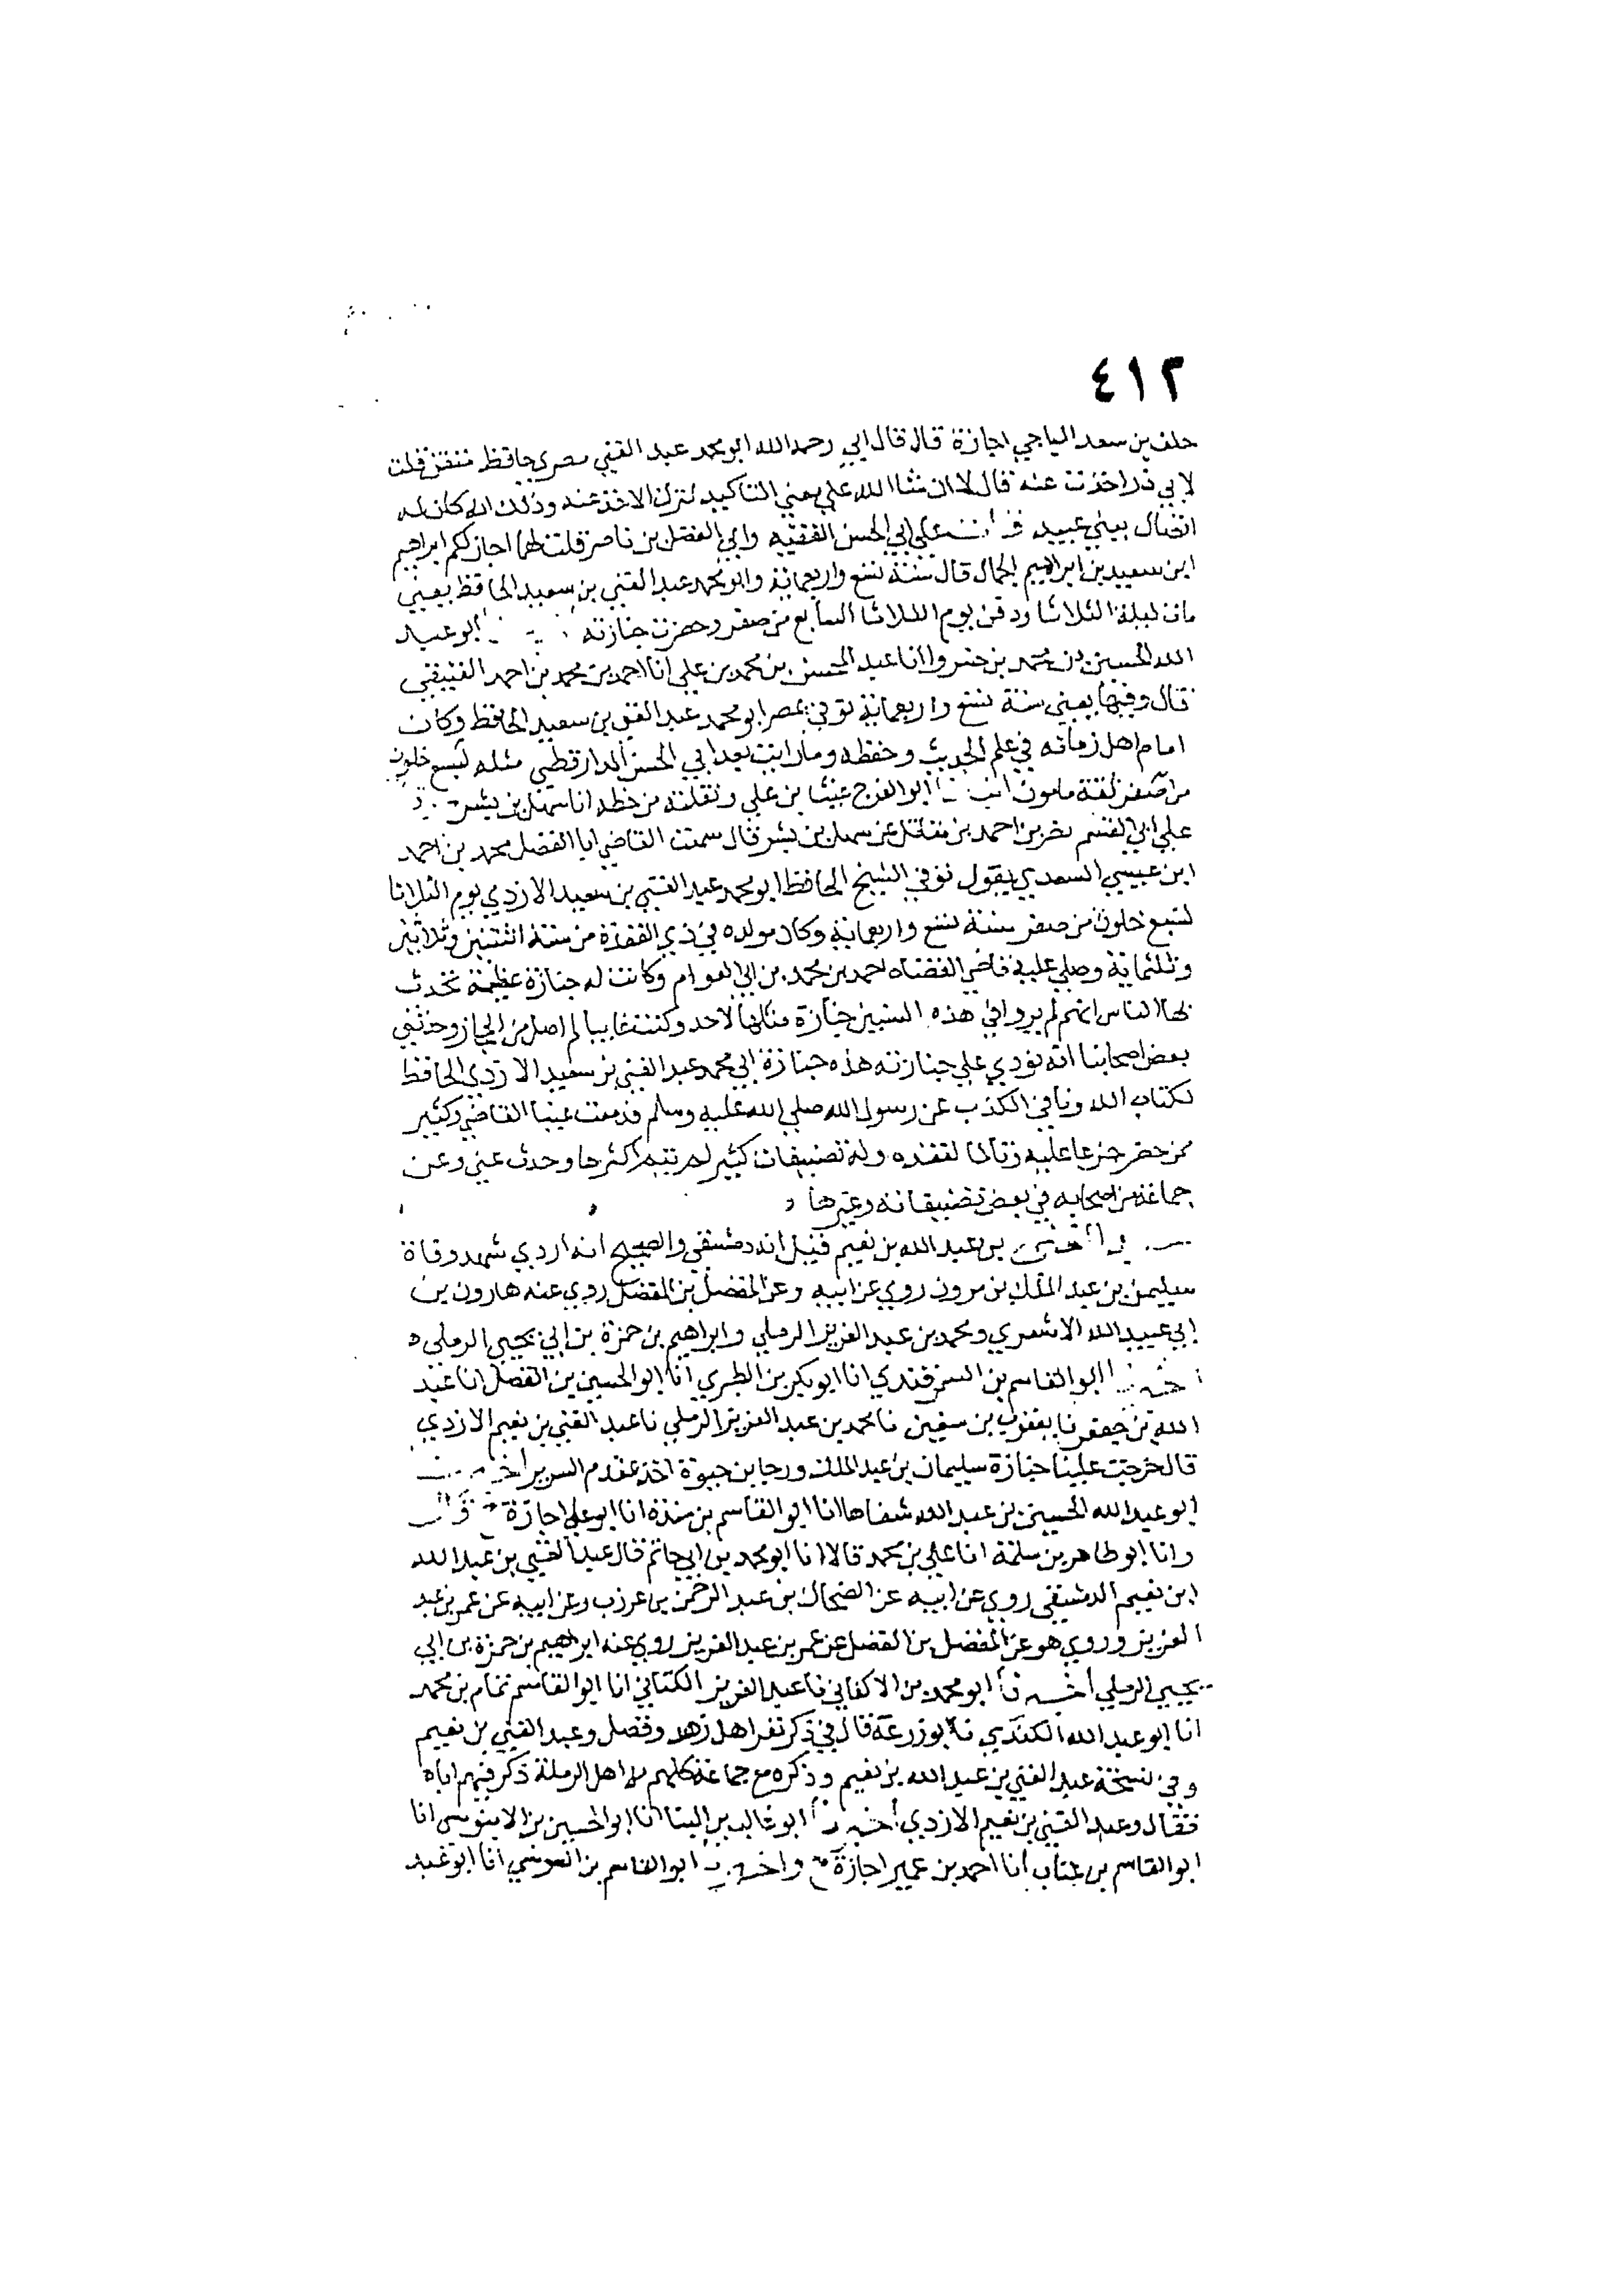 ٤١٣
خلف بن سعد الباجي اجازة قال قال ابي رحمه الله ابو محمد عبد الغني مصري حافظ متقن قلت
لابي ذر اخذت عنه قال لا ان شا الله علي معني التاكيد لترك الاخذ عنه وذلك انه كان له
اتصال ببني عبيد قرات علي ابي الحسن الفقيه وابي الفضل بن ناصر قلت لهما اجاز لكم ابراهيم
ابن سعيد بن ابراهيم الحمال قال سنة تسع واربعماية وابو محمد عبد الغني بن سعيد الحافظ يعني
مات ليلة الثلاثا ودفن يوم الثلاثا السابع من صفر وحضرت جنازته ابو عبد
الله الحسين بن محمد بن خسرو انا عبد المحسن بن محمد بن علي انا احمد بن محمد بن احمد العتيقي
قال وفيها يعني سنة تسع واربعماية توفي بمصر ابو محمد عبد الغني بن سعيد الحافظ وكان
امام اهل زمانه في علم الحديث وحفظه وما رايت بعد ابي الحسن الدارقطني مثله لسبع خلون
من صفر ثقة مامون ابو الفرج غيث بن علي ونقلته من خطه انا سهل بن بشر
علي ابي القسم نصر بن احمد بن مقاتل عن سهل بن بشر قال سمعت القاضي ابا الفضل محمد بن احمد
ابن عيسي السعدي يقول توفي الشيخ الحافظ ابو محمد عبد الغني بن سعيد الازدي يوم الثلاثا
لسبع خلون من صفر سنة تسع واربعماية وكان مولده في ذي القعدة من سنة اثنتين وثلاثين
وثلثماية وصلي عليه قاضي القضاه احمد بن محمد بن ابي العوام وكانت له جنازة عظيمة تحدث
بها الناس انهم لم يروا في هذه السنين جنازة مثلها لاحد وكنت غايبا لم اصل من الحجاز وحدثني
بعض اصحابنا انه نودي علي جنازته هذه جنازة ابي محمد عبد الغني بن سعيد الازدي الحافظ
لكتاب الله ونافي الكذب عن رسول الله صلي الله عليه وسلم فدمعت عينا القاضي وكثير
ممن حضر جزعا عليه وتالما لفقده وله تصنيفات كثير لم يتم اكثرها وحدث عني وعن
جماعة من اصحابه في بعض تصنيفاته وغيرها
بن عبد الله بن نعيم قيل انه دمشقي والصحيح انه اردي شهد وفاة
سليمن بن عبد الملك بن مرون روي عن ابيه وعن المفضل بن الفضل روي عنه هارون بن
ابي عبيد الله الاشعري ومحمد بن عبد العزيز الرملي وابراهيم بن حمزة بن ابي يحيي الرملي ه
ابو القاسم بن السمرقندي انا ابو بكر بن الطبري انا ابو الحسين بن الفضل انا عبد
الله بن جعفر نا يعقوب بن سفين نا محمد بن عبد العزيز الرملي نا عبد الغني بن نعيم الازدي
قال خرجت علينا جنازة سليمان بن عبد الملك ورجا بن حيوة اخذ بمقدم السرير
ابو عبد الله الحسين بن عبد الملك شفاها انا ابو القاسم بن منده انا ابو علي اجازة ح قال
وانا ابو طاهر بن سلمة انا علي بن محمد قالا انا ابو محمد بن ابي حاتم قال عبد الغني بن عبد الله
ابن نعيم الدمشقي روي عن ابيه عن الضحاك بن عبد الرحمن بن عرزب وعن ابيه عن عمر بن عبد
العزيز وروي هو عن المفضل بن الفضل عن عمر بن عبد العزيز روي عنه ابراهيم بن حمزة بن ابي
يحيي الرملي اخبرنا ابو محمد بن الاكفاني نا عبد العزيز الكتاني انا ابو القاسم تمام بن محمد
انا ابو عبد الله الكندي نا ابو زرعة قال في ذكر نفر اهل زهد وفضل وعبد الغني بن نعيم
وفي نسخة عبد الغني بن عبد الله بن نعيم وذكره مع جماعة كلهم من اهل الرملة ذكر فيهم اباه
فقال وعبد الغني بن نعيم الازدي اخبرنا ابو غالب بن البنا انا ابو الحسين بن الابنوسي انا
ابو القاسم بن عتاب انا احمد بن عمير اجازة ح واخبرنا ابو القاسم بن السوسي انا ابو عبد